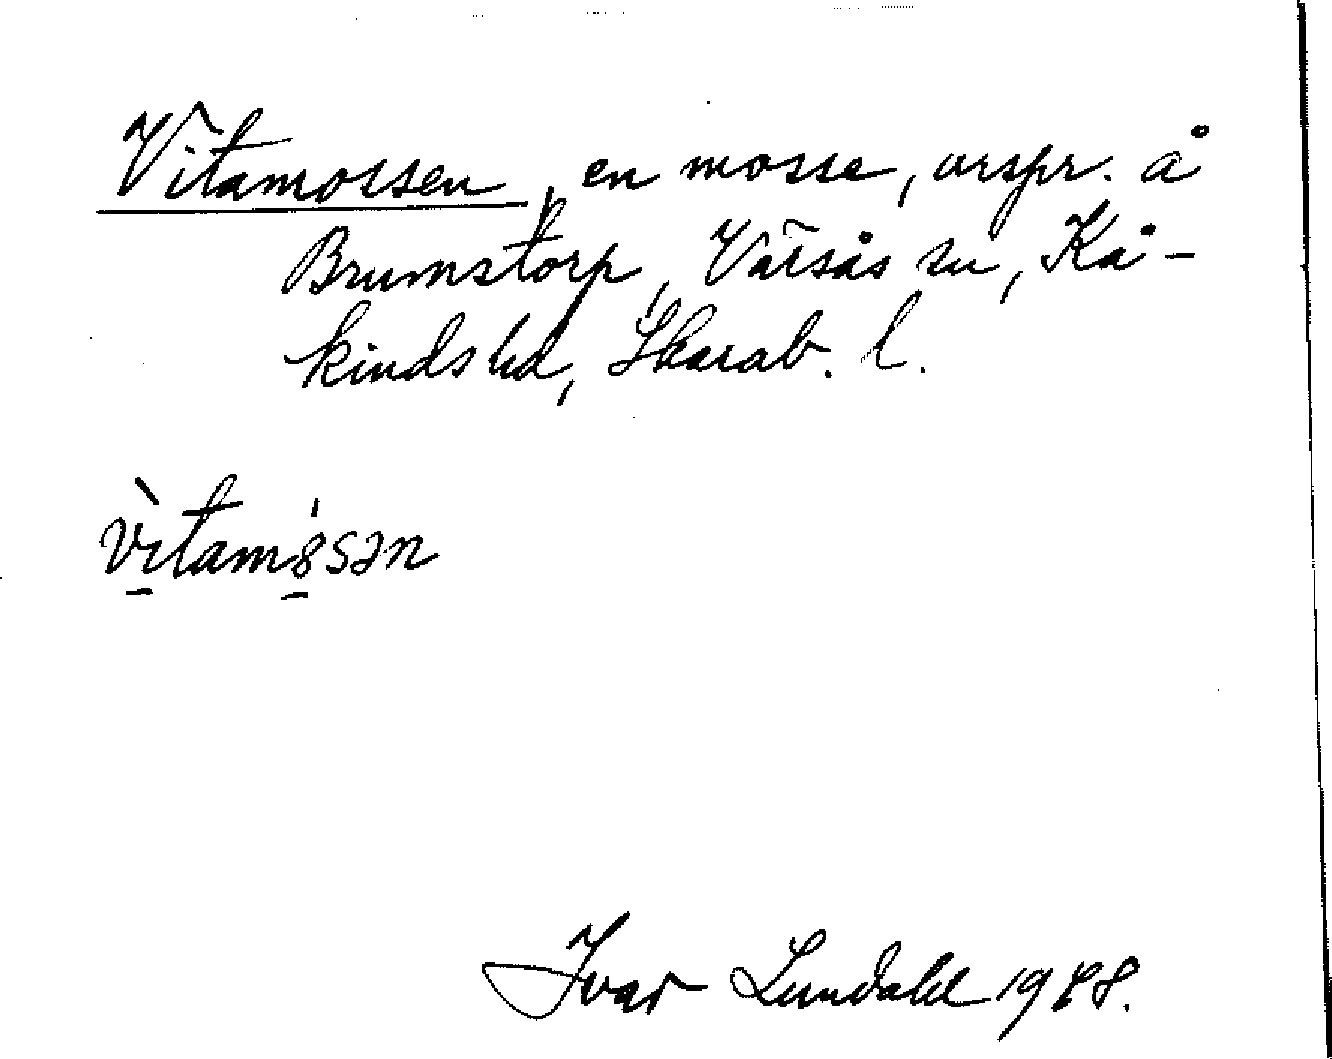 Vitamossen, en mosse, urspr. å
Brumstorp, Värsås sn, Kå-
kinds hd, Skarab. l.
vìtamósən
Ivar Lundahl 1948.